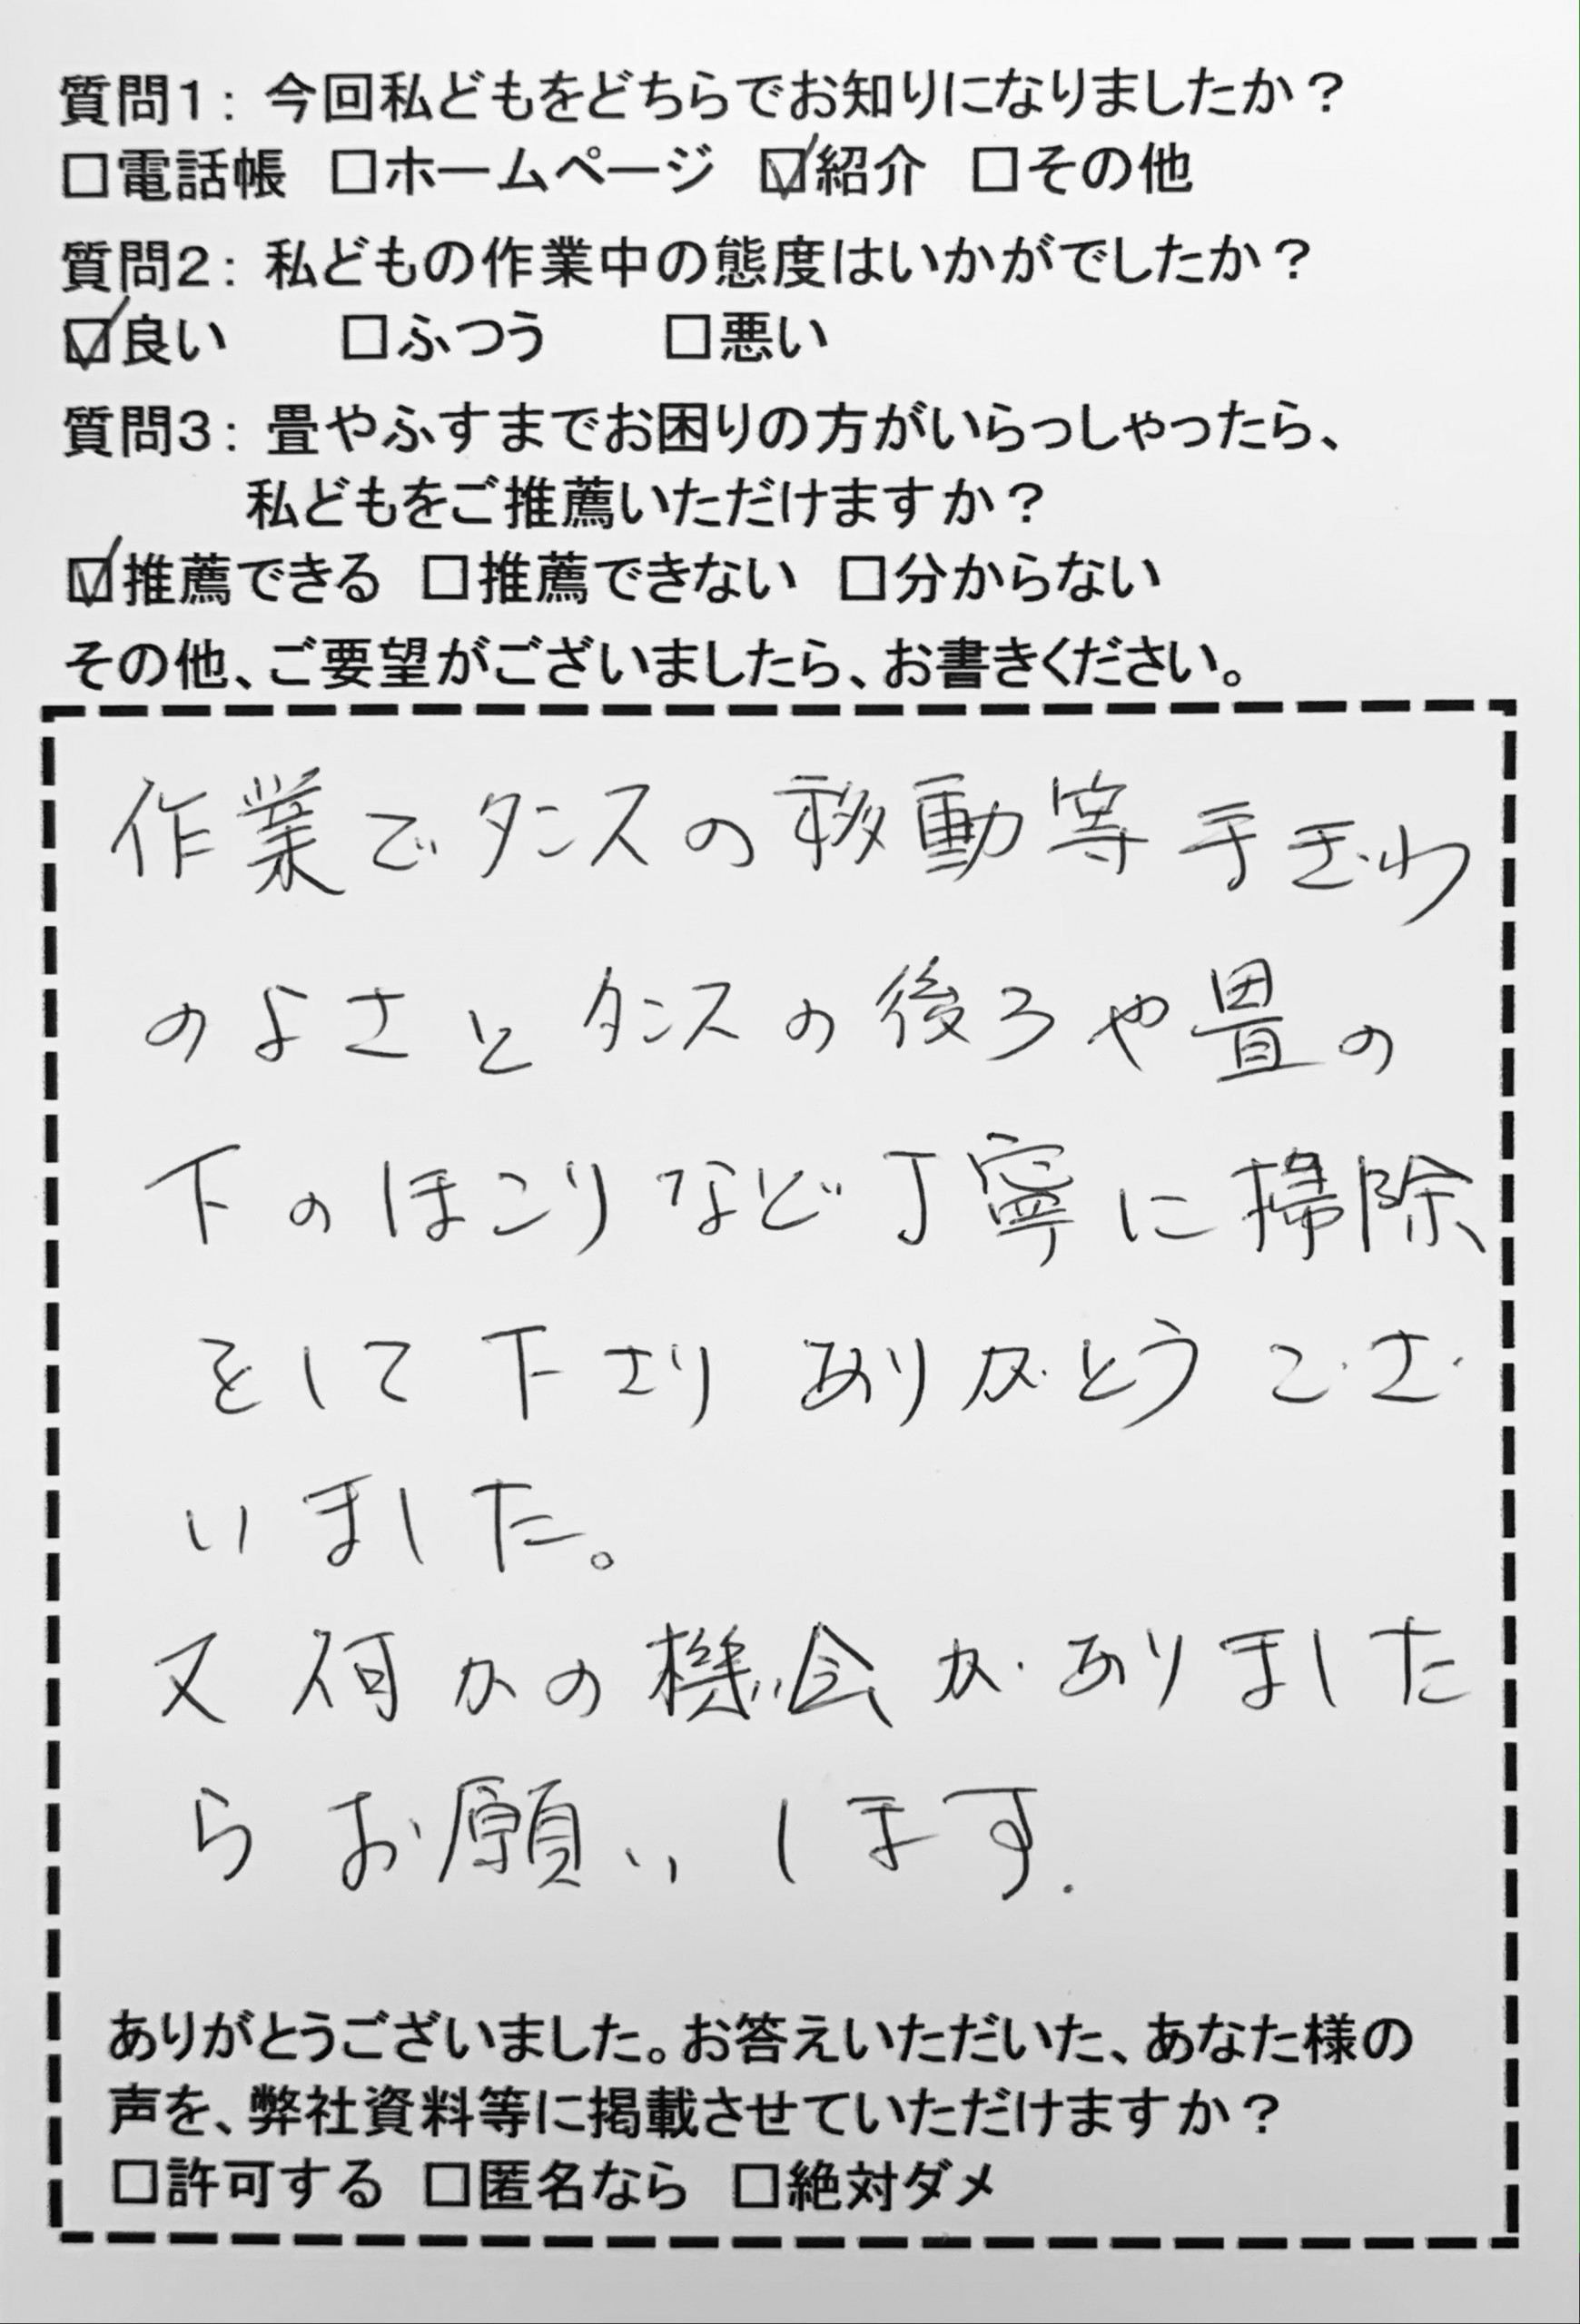 質問1: 今回私どもをどちらでお知りになりましたか？
□電話帳 □ホームページ ☑紹介 □その他
質問2: 私どもの作業中の態度はいかがでしたか？
☑良い □ふつう □悪い
質問3: 畳やふすまでお困りの方がいらっしゃったら、
私どもをご推薦いただけますか？
☑推薦できる □推薦できない □分からない
その他、ご要望がございましたら、お書きください。
作業でタンスの移動等手ぎわ
のよさとタンスの後ろや畳の
下のほこりなど丁寧に掃除
をして下さりありがとうござ
いました。
又何かの機会がありました
らお願いします.
ありがとうございました。お答えいただいた、あなた様の
声を、弊社資料等に掲載させていただけますか？
□許可する □匿名なら □絶対ダメ